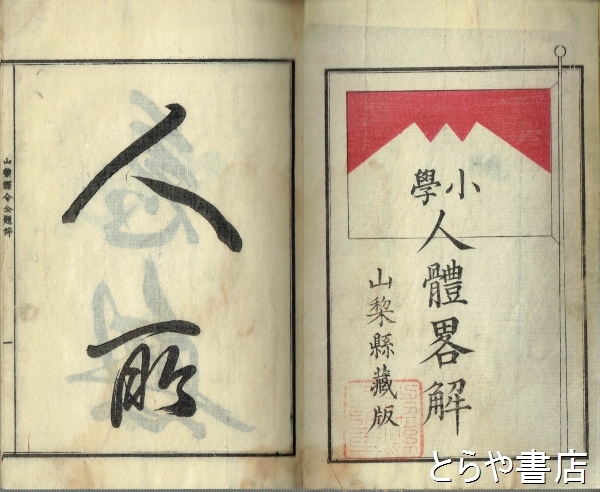 小學
人體畧解
山黎縣藏版
人
所
山黎縣令公題辭
一
とらや書店